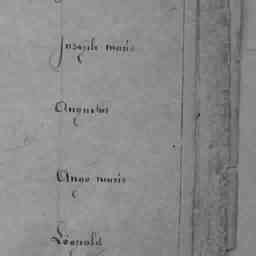 Joseph marie
Augustin
Ange marie
Léopold